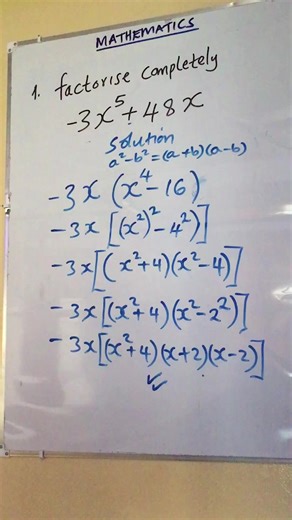 MATHEMATICS
1. factorise completely
-3x⁵ + 48x
Solution
a²-b² = (a+b)(a-b)
-3x (x⁴-16)
-3x [(x²)² - 4²)]
-3x [(x²+4)(x²-4)]
-3x [(x²+4)(x²-2²)]
-3x [(x²+4)(x+2)(x-2)]